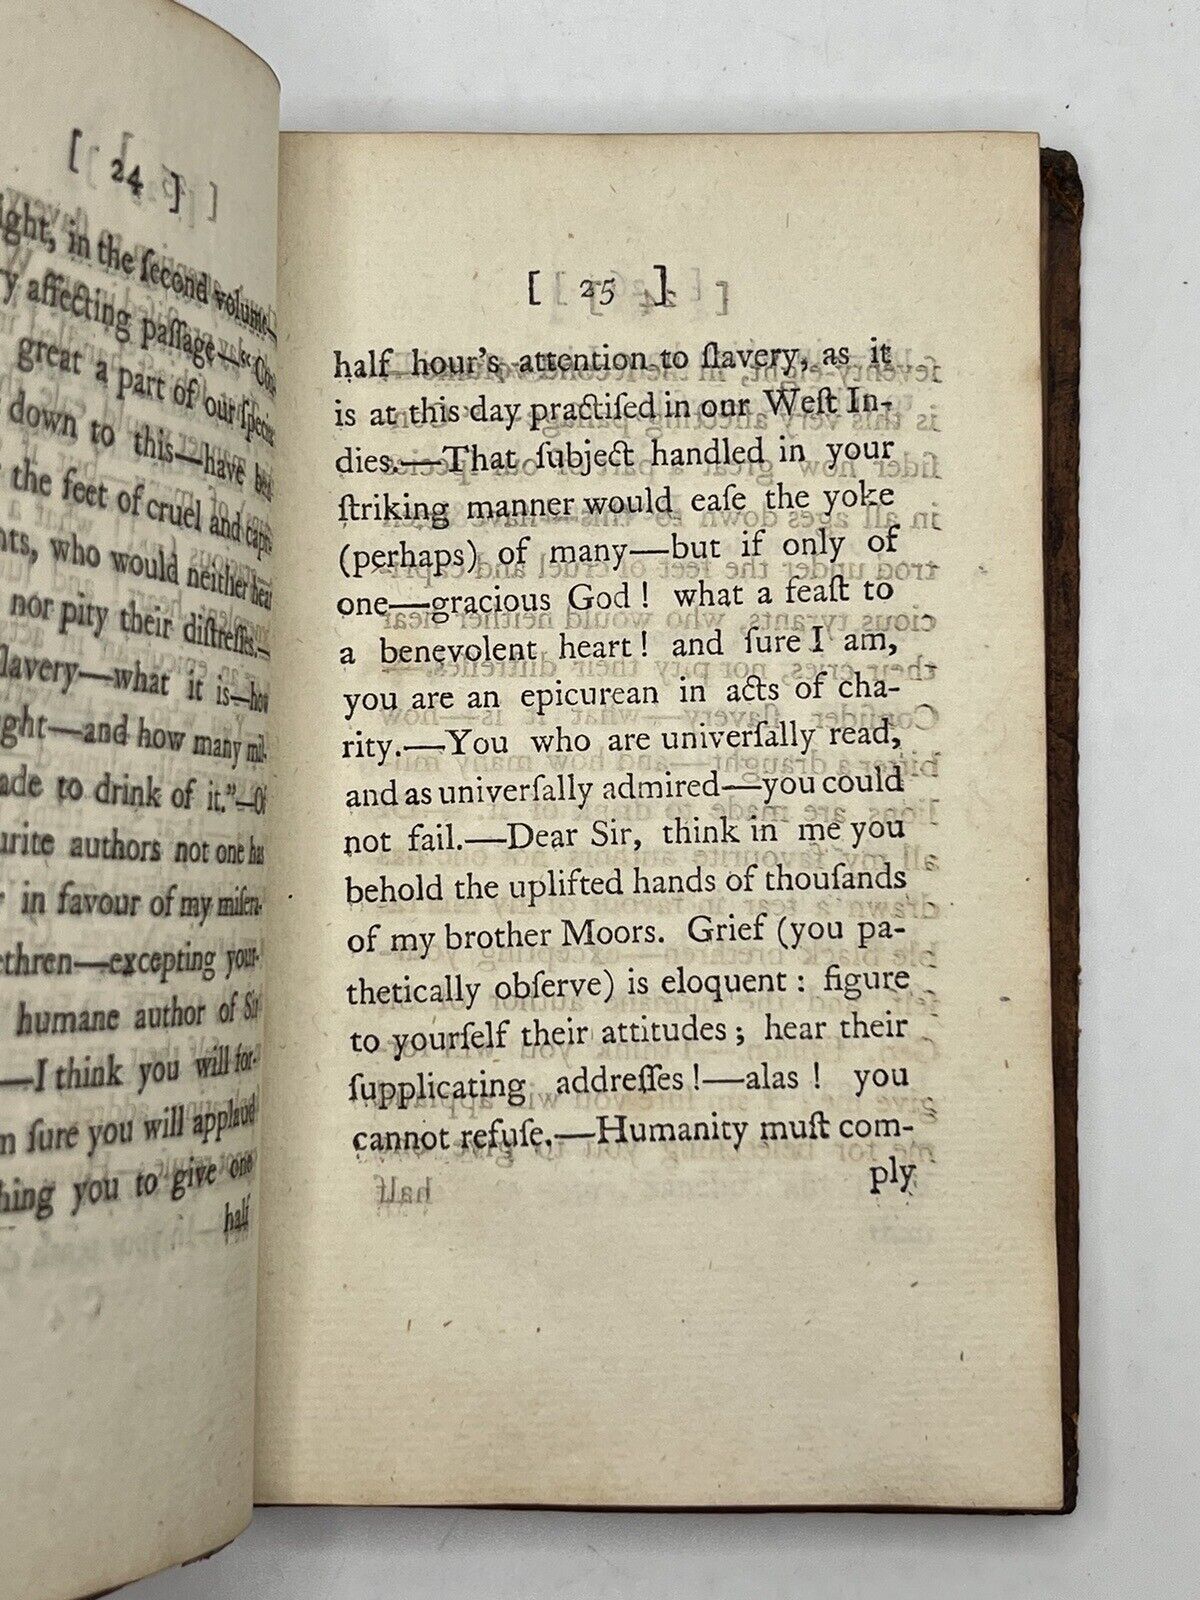 [ 24 ]
ight, in the ſecond volume—
y affecting paſſage—"Con
great a part of our ſpecies
down to this—have been
the feet of cruel and capri
nts, who would neither hear
nor pity their diſtreſſes.—
ſlavery—what it is—how
ught—and how many mil-
ade to drink of it."—Of
urite authors not one has
in favour of my miſera-
ethren—excepting your-
humane author of Sir
—I think you will for-
m ſure you will applaud
hing you to give one
half
[ 25 ]
half hour's attention to ſlavery, as it
is at this day practiſed in our Weſt In-
dies.—That ſubject handled in your
ſtriking manner would eaſe the yoke
(perhaps) of many—but if only of
one—gracious God! what a feaſt to
a benevolent heart! and ſure I am,
you are an epicurean in acts of cha-
rity.—You who are univerſally read,
and as univerſally admired—you could
not fail.—Dear Sir, think in me you
behold the uplifted hands of thouſands
of my brother Moors. Grief (you pa-
thetically obſerve) is eloquent: figure
to yourſelf their attitudes; hear their
ſupplicating addreſſes!—alas! you
cannot refuſe.—Humanity muſt com-
ply